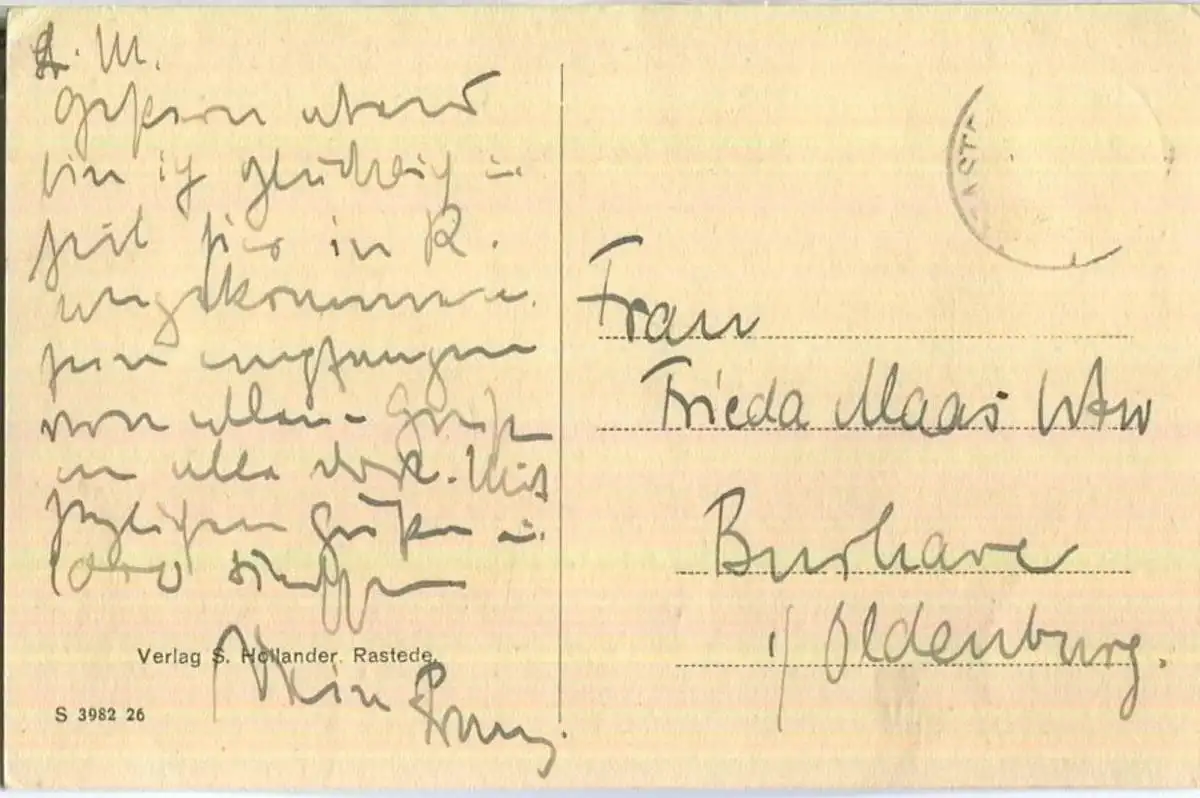 L. M.
Gestern abend
bin ich glücklich u.
heil hier in R.
angekommen.
fein empfangen
von allen. Grüße
an alle dort. Mit
herzlichen Grüßen u.
Dein Franz.
Verlag S. Hollander, Rastede.
S 3982 26
RASTE
Frau
Frieda Maas Wtw
Burhave
i/ Oldenburg.